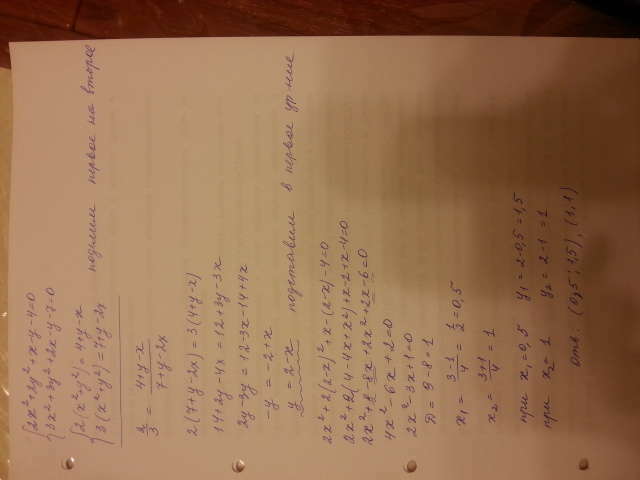 2x²+2y²+x-y-4=0
3x²+3y²+2x-y-7=0
2(x²+y²)=4+y-x
3(x²+y²)=7+y-2x поделим первое на второе
2/3 = (4+y-x)/(7+y-2x)
2(7+y-2x)=3(4+y-x)
14+2y-4x=12+3y-3x
2y-3y=12-3x-14+4x
-y=-2+x
y=2-x подставим в первое ур-ние
2x²+2(2-x)²+x-(2-x)-4=0
2x²+2(4-4x+x²)+x-2+x-4=0
2x²+8-8x+2x²+2x-6=0
4x²-6x+2=0
2x²-3x+1=0
D=9-8=1
x₁=(3-1)/4=1/2=0,5
x₂=(3+1)/4=1
при x₁=0,5 y₁=2-0,5=1,5
при x₂=1 y₂=2-1=1
Отв: (0,5;1,5), (1,1)